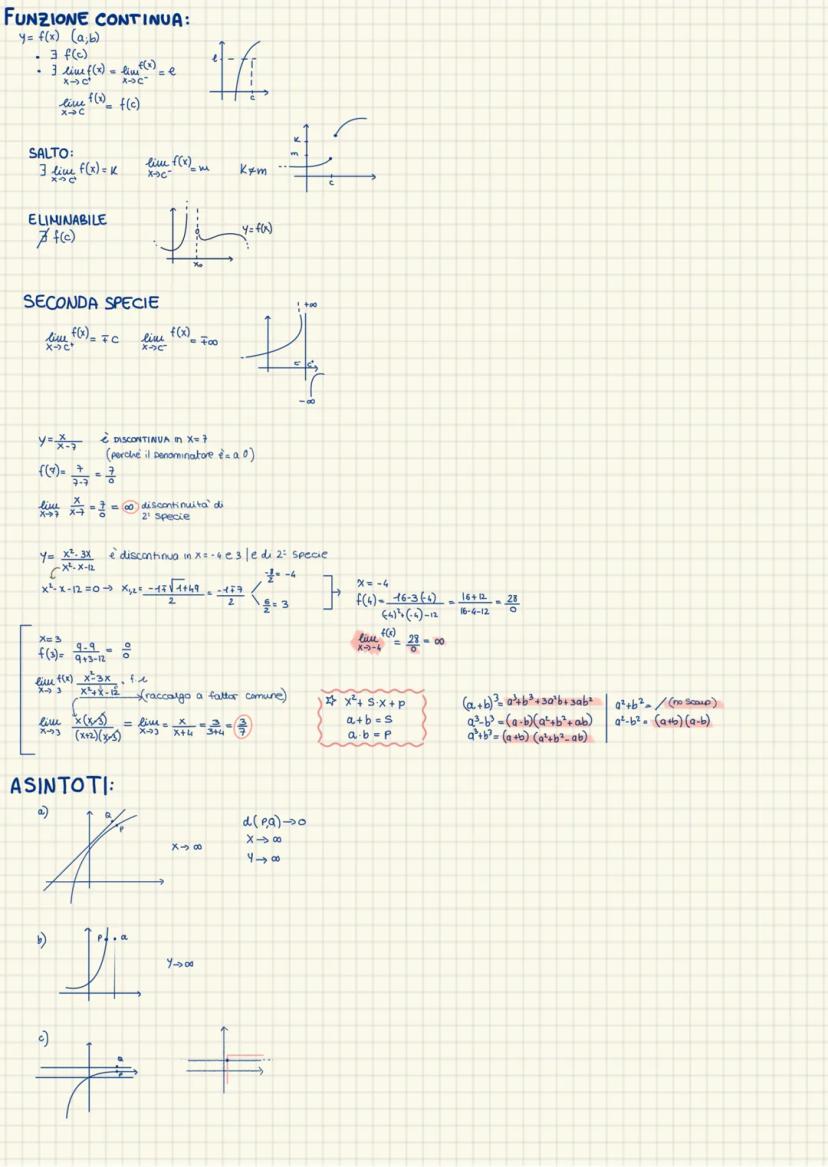 FUNZIONE CONTINUA:
y = f(x) (a;b)
• ∃ f(c)
• ∃ lim x→c⁺ f(x) = lim x→c⁻ f(x) = e
lim x→c f(x) = f(c)
l
c
SALTO:
∃ lim x→c⁺ f(x) = K lim x→c⁻ f(x) = m K≠m
K
m
c
ELIMINABILE
∄ f(c)
y=f(x)
x₀
SECONDA SPECIE
+∞
lim x→c⁺ f(x) = ∓ C lim x→c⁻ f(x) = ∓∞
-∞
y = x/(x-7) è DISCONTINUA in x=7
(perché il denominatore è = a 0)
f(7) = 7/(7-7) = 7/0
lim x→7 x/(x-7) = 7/0 = ∞ discontinuità di
2ᵃ specie
y = (x²-3x)/(x²-x-12) è discontinua in x=-4 e 3 | e di 2ᵃ specie
x²-x-12=0 → x₁,₂ = (-1∓√(1+49))/2 = (-1∓7)/2 -8/2 = -4
6/2 = 3
x = -4
f(4) = (16-3(-4))/((-4)²+(-4)-12) = (16+12)/(16-4-12) = 28/0
lim x→-4 f(x) = 28/0 = ∞
x=3
f(3) = (9-9)/(9+3-12) = 0/0
lim x→3 f(x) (x²-3x)/(x²+x-12) . f.i
(raccolgo a fattor comune)
lim x→3 x(x-3)/((x+2)(x-3)) = lim x→3 x/(x+4) = 3/(3+4) = 3/7
☆ x²+S·x+p
a+b = S
a·b = P
(a+b)³ = a³+b³+3a²b+3ab²
a³-b³ = (a-b)(a²+b²+ab)
a³+b³ = (a+b)(a²+b²-ab)
a²+b² = / (no scomp)
a²-b² = (a+b)(a-b)
ASINTOTI:
a)
Q
P
x→∞
d(P,Q)→0
x→∞
y→∞
b)
P . Q
y→∞
c)
Q
P